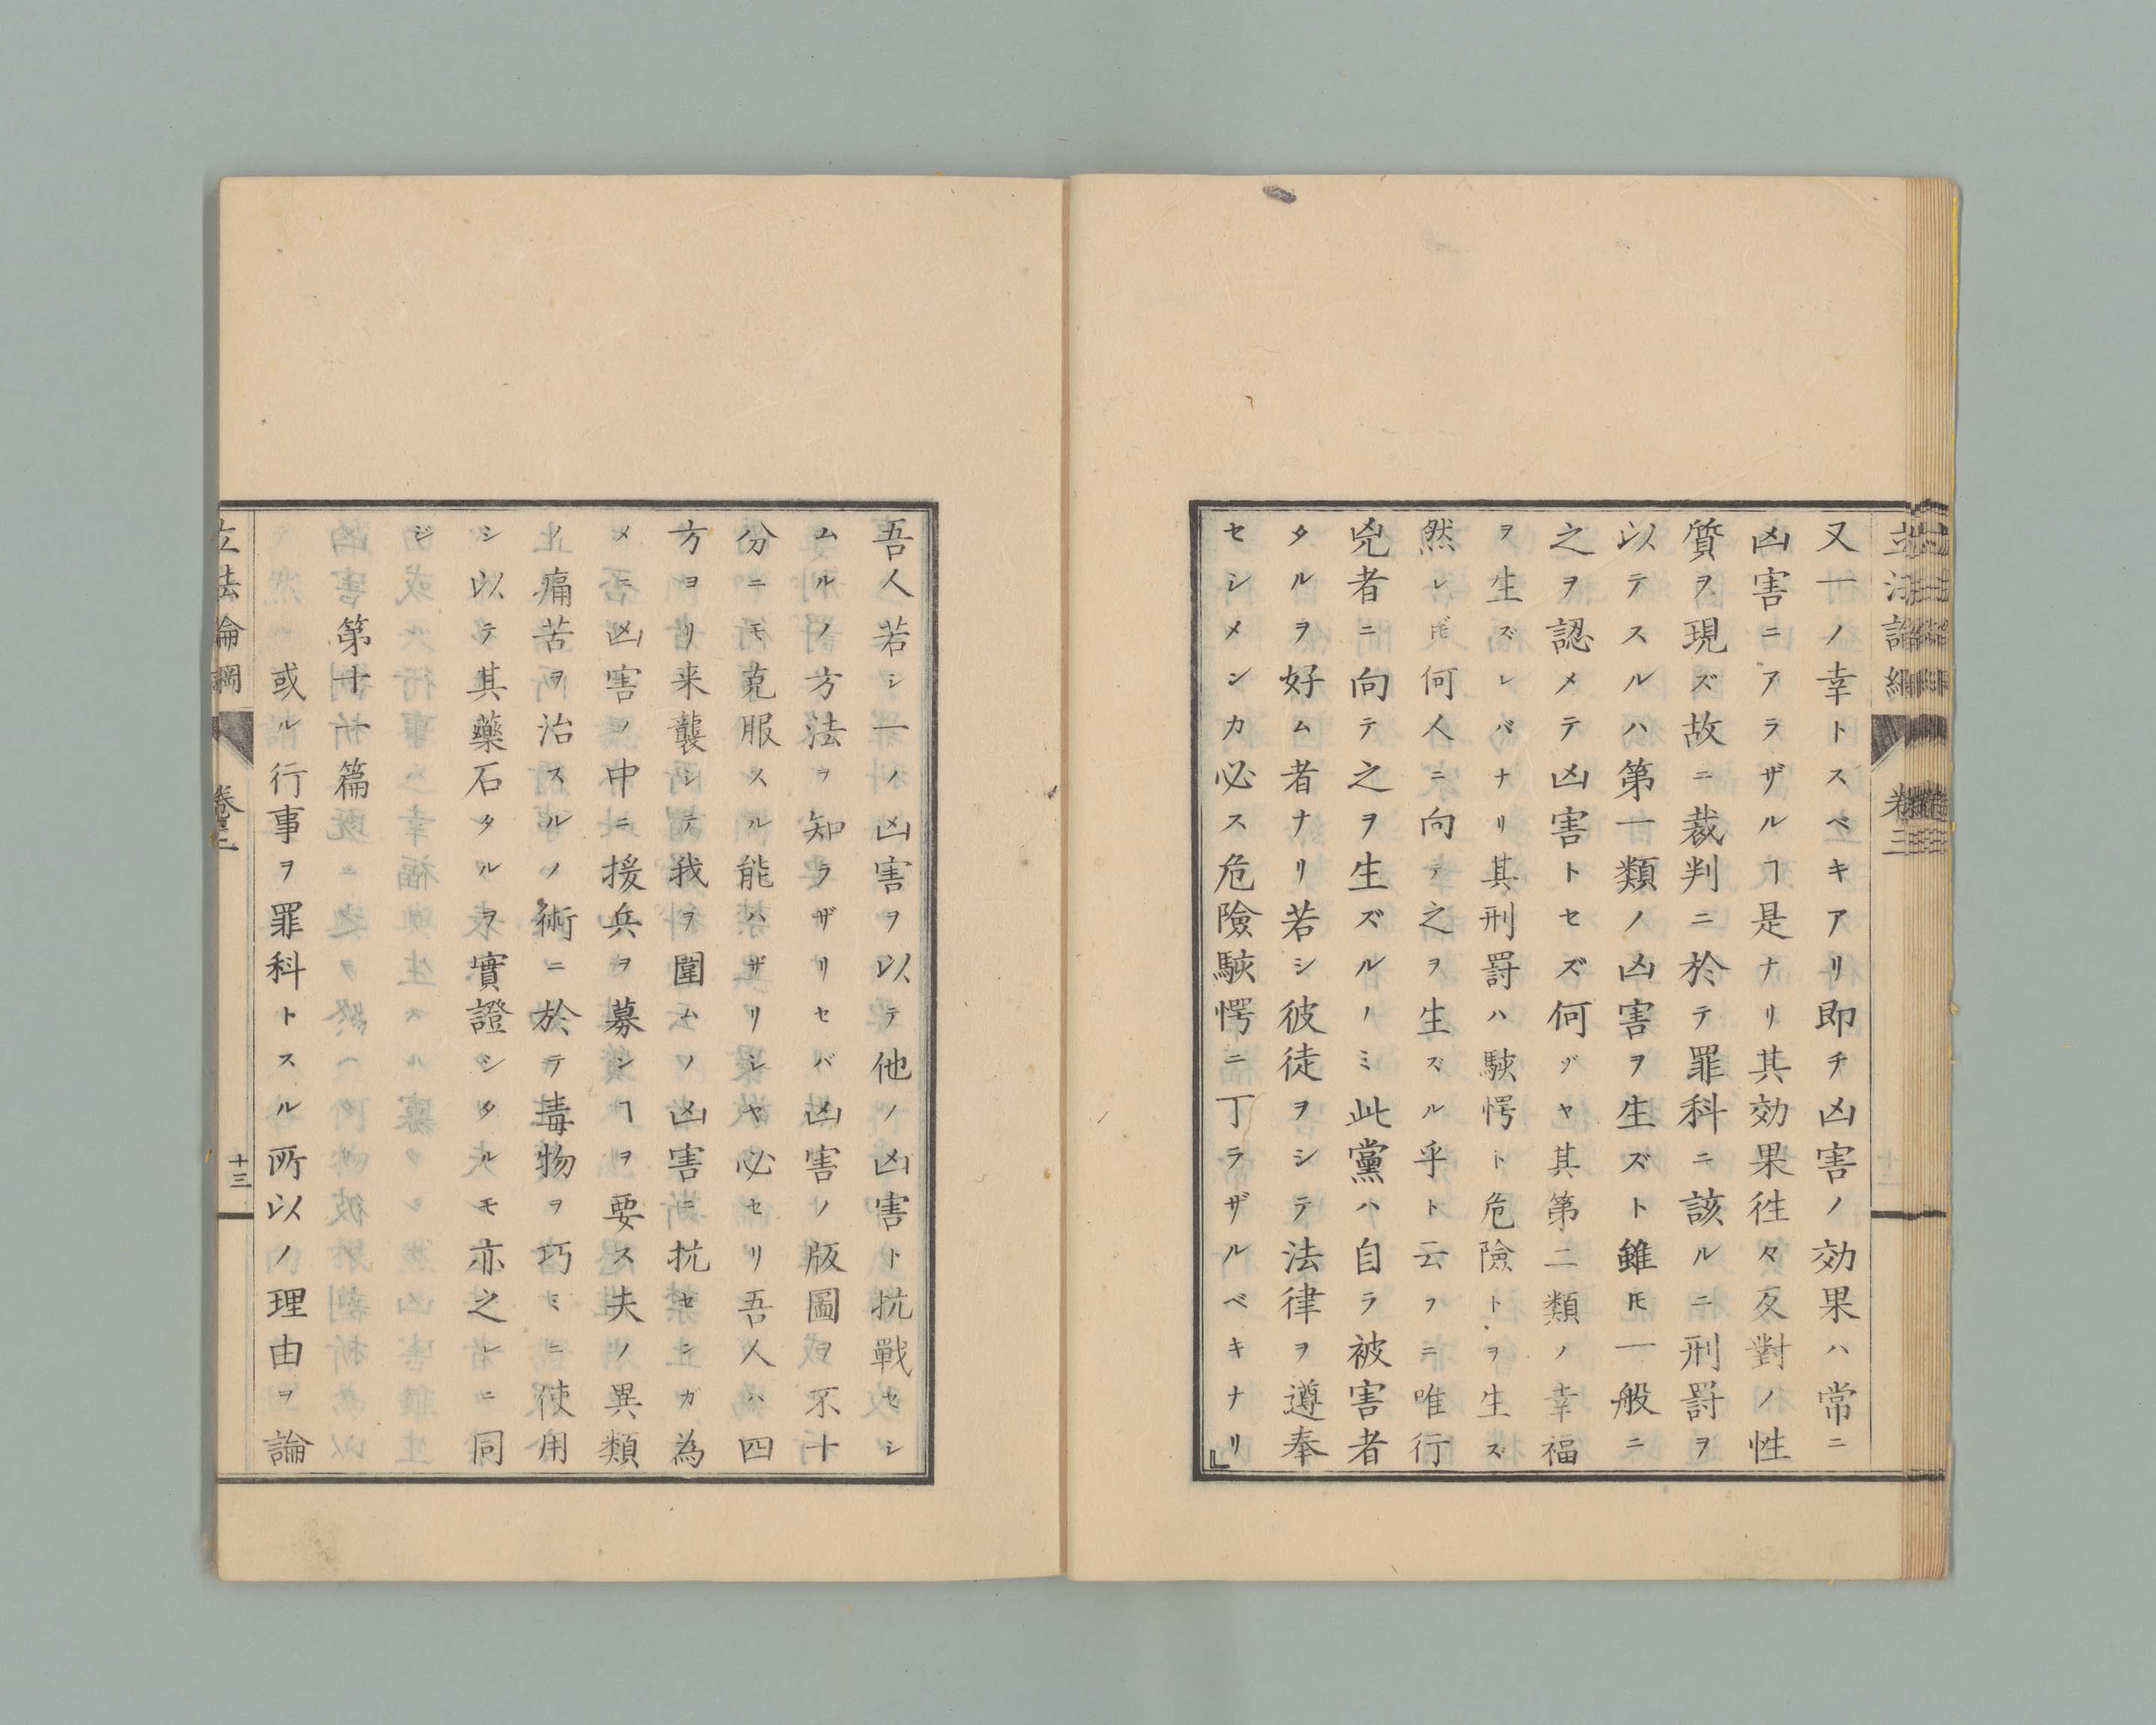 又一ノ幸トスベキアリ即チ凶害ノ効果ハ常ニ
凶害ニアラザルヿ是ナリ其効果徃々反對ノ性
質ヲ現ズ故ニ裁判ニ於テ罪科ニ該ルニ刑罸ヲ
以テスルハ第一類ノ凶害ヲ生ズト雖𪜈一般ニ
之ヲ認メテ凶害トセズ何ゾヤ其第二類ノ幸福
ヲ生ズレバナリ其刑罸ハ駭愕ト危險トヲ生ズ
然レ𪜈何人ニ向テ之ヲ生ズル乎ト云フニ唯行
兇者ニ向テ之ヲ生ズルノミ此黨ハ自ラ被害者
タルヲ好ム者ナリ若シ彼徒ヲシテ法律ヲ遵奉
セシメンカ必ス危險駭愕ニ丁ラザルベキナリ』
吾人若シ一ノ凶害ヲ以テ他ノ凶害ト抗戰セシ
ムルノ方法ヲ知ラザリセバ凶害ノ版圖ヲ不十
分ニモ克服スル能ハザリシヤ必セリ吾人ハ四
方ヨリ来襲シテ我ヲ圍ムノ凶害ニ抗セシガ為
メニ凶害ノ中ニ援兵ヲ募シヿヲ要ス夫ノ異類
ノ痛苦ヲ治スルノ術ニ於テ毒物ヲ巧ミニ使用
シ以テ其藥石タルヲ實證シタルモ亦之レニ同
ジ
第十篇
或ル行事ヲ罪科トスル所以ノ理由ヲ論
立法論綱
卷三
十三